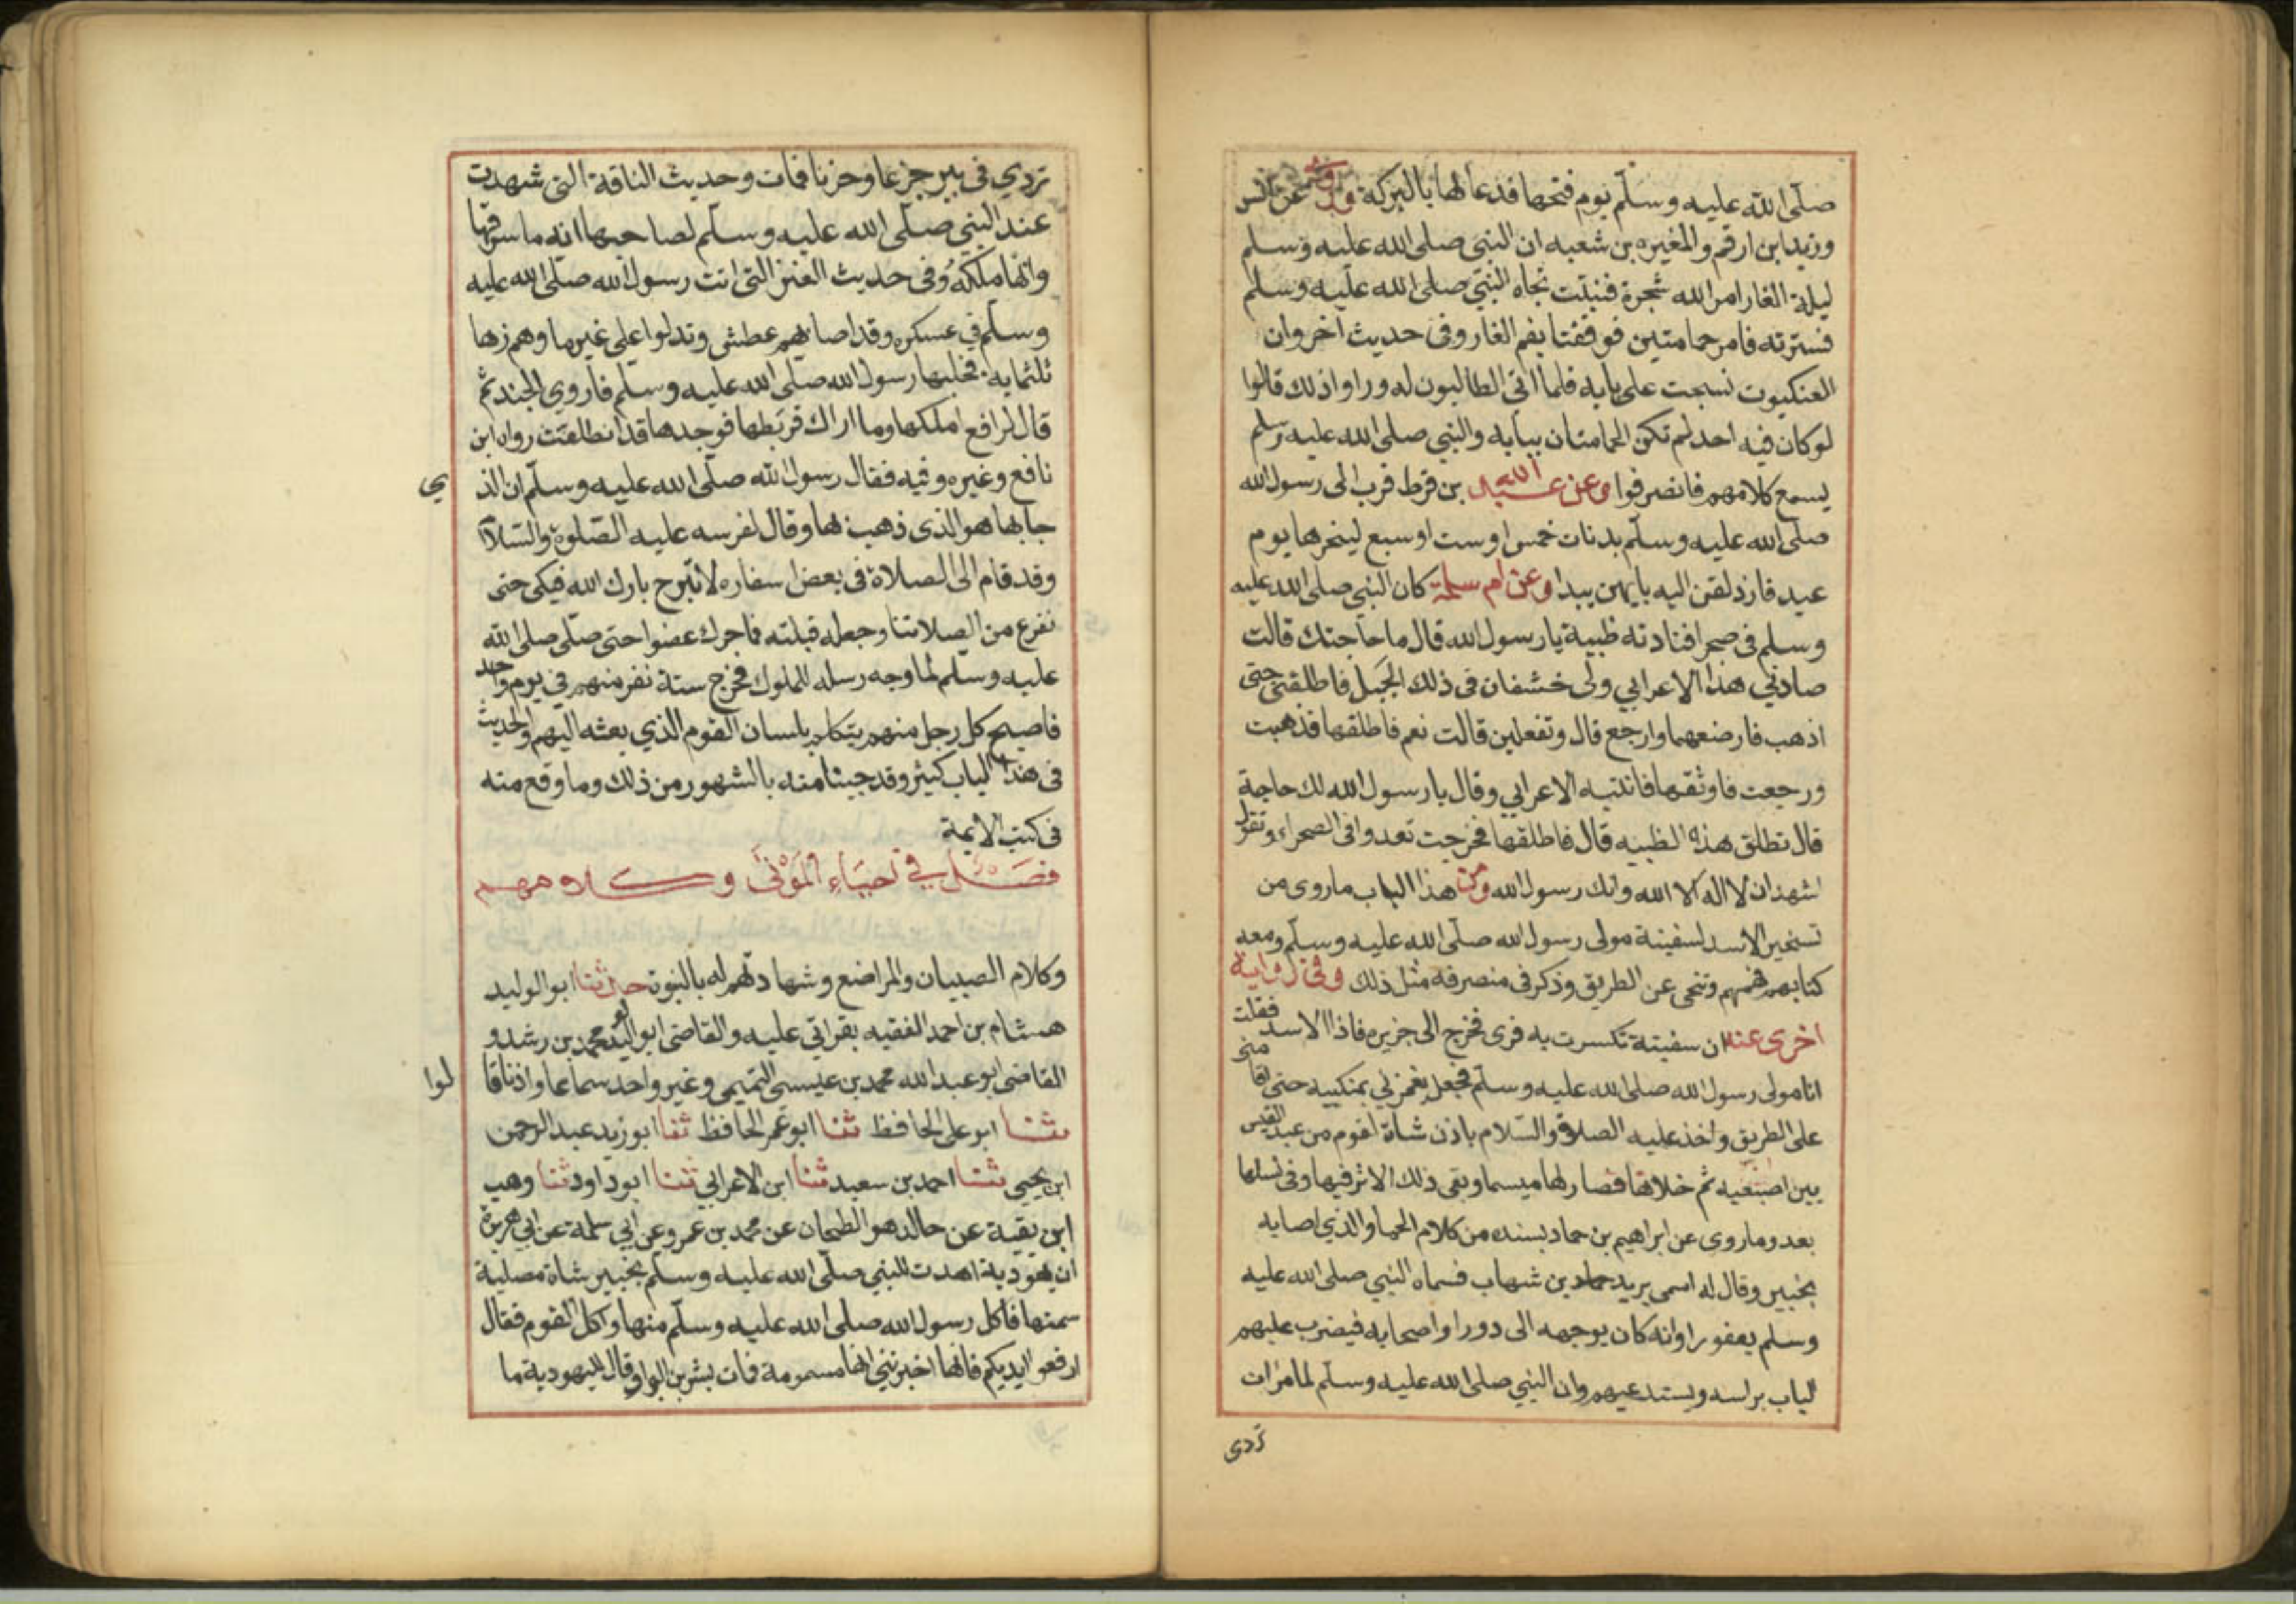 صلّى الله عليه وسلّم يوم فتحها فدعا لها بالبركة وروى عن انس
وزيد ابن ارقم والمغيره بن شعبه ان النبي صلى الله عليه وسلم
ليلة الغار امر الله شجرة فنبتت تجاه النبي صلى الله عليه وسلم
فسترته فامر حمامتين فوقفتا بفم الغار وفى حديث اخر وان
العنكبوت نسجت على بابه فلما اتى الطالبون له وراوا ذلك قالوا
لو كان فيه احد لم تكن الحمامتان ببابه والنبي صلى الله عليه وسلم
يسمع كلامهم فانصرفوا وعن عبد الله بن قرط قرب الى رسول الله
صلى الله عليه وسلّم بدنات خمس او ست او سبع لينحرها يوم
عيد فازدلفن اليه بايهن يبدا وعن ام سلمة كان النبي صلى الله عليه
وسلم فى صحرا فنادته ظبية يا رسول الله قال ما حاجتك قالت
صادني هذا الاعرابي ولى خشفان فى ذلك الجبل فاطلقنى حتى
اذهب فارضعهما وارجع قال وتفعلين قالت نعم فاطلقها فذهبت
ورجعت فاوثقها فانتبه الاعرابي وقال يا رسول الله لك حاجة
قال تطلق هذه الظبيه قال فاطلقها فخرجت تعدوا فى الصحراء وتقول
اشهد ان لا اله الا الله وانك رسول الله ومن هذا الباب ما روى من
تسخير الاسد لسفينة مولى رسول الله صلّى الله عليه وسلّم ومعه
كتابه فهمهم وتنحى عن الطريق وذكر فى منصرفه مثل ذلك وفى رواية
اخرى عنه ان سفينة تكسرت به فرى فخرج الى جزيره فاذا الاسد فقلت
انا مولى رسول الله صلى الله عليه وسلّم فجعل يغمزني بمنكبيه حتى اقامنى
على الطريق واخذ عليه الصلاة والسّلام باذن شاة لقوم من عبد القيس
بين اصبعيه ثم خلاها فصار لها ميسما وبقى ذلك الاثر فيها وفى نسلها
بعد وما روى عن ابراهيم بن حماد بسنده من كلام الحمار الذي اصابه
بخيبر وقال له اسمى يزيد بن شهاب فسماه النبي صلى الله عليه
وسلم يعفورا وانه كان يوجهه الى دور اصحابه فيضرب عليهم
الباب براسه ويستدعيهم وان النبي صلى الله عليه وسلّم لما مات
تردى
تردي فى بير جزعا وحزنا فمات وحديث الناقة التى شهدت
عند النبي صلّى الله عليه وسلّم لصاحبها انه ما سرقها
وانها ملكه وفى حديث العنز التى اتت رسول الله صلّى الله عليه
وسلّم في عسكره وقد اصابهم عطش ونزلوا على غير ما وهم زها
ثلثمايه فحلبها رسول الله صلّى الله عليه وسلّم فاروي الجند ثم
قال لرافع املكها وما اراك فربطها فوجدها قد انطلقت رواه ابن
نافع وغيره وفيه فقال رسول الله صلّى الله عليه وسلّم ان الذ ي
جا بها هو الذى ذهب بها وقال لفرسه عليه الصّلوة والسّلام
وقد قام الى الصلاة فى بعض اسفاره لا تبرح بارك الله فيك حتى
نفرغ من الصلاتنا وجعله قبلته فما حرك عضوا حتى صلّى صلى الله
عليه وسلّم لما وجه رسله للملوك فخرج ستة نفر منهم في يوم واحد
فاصبح كل رجل منهم يتكلم بلسان القوم الذي بعثه اليهم والحديث
فى هذا الباب كثير وقد جينا منه بالمشهور من ذلك وما وقع منه
فى كتب الايمة
فصل في احياء الموتى وكلامهم
وكلام الصبيان والمراضع وشهادتهم له بالنبوة حدثنا ابو الوليد
هشام بن احمد الفقيه بقراتي عليه والقاضى ابو الوليد محمد بن رشد و
القاضى ابو عبد الله محمد بن عيسى التميمي وغير واحد سماعا واذنا قا لوا
ثنا ابو على الحافظ ثنا ابو عمر الحافظ ثنا ابو زيد عبد الرحمن
ابن يحيى ثنا احمد بن سعيد ثنا ابن الاعرابي ثنا ابو داود ثنا وهب
ابن بقية عن خالد هو الطحان عن محمد بن عمرو عن ابي سلمة عن ابي هريرة
ان يهودية اهدت للنبي صلّى الله عليه وسلّم بخيبر شاة مصلية
سمتها فاكل رسول الله صلى الله عليه وسلّم منها واكل القوم فقال
ارفعوا ايديكم فانها اخبرتني انها مسمومة فمات بشر بن البراء وقال لليهودية ما